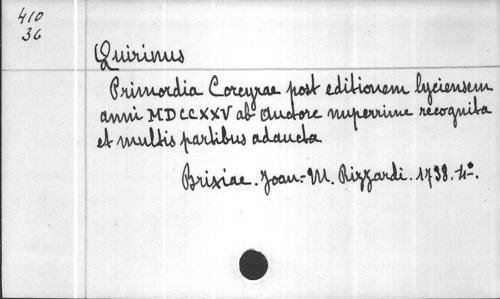 410
36
Quirinus
Primordia Corcyrae post editionem lyciensem
anni MDCCXXV ab Auctore nuperrime recognita
et multis partibus adaucta
Brixiae. Joan: M. Rizzardi. 1738. 4°.